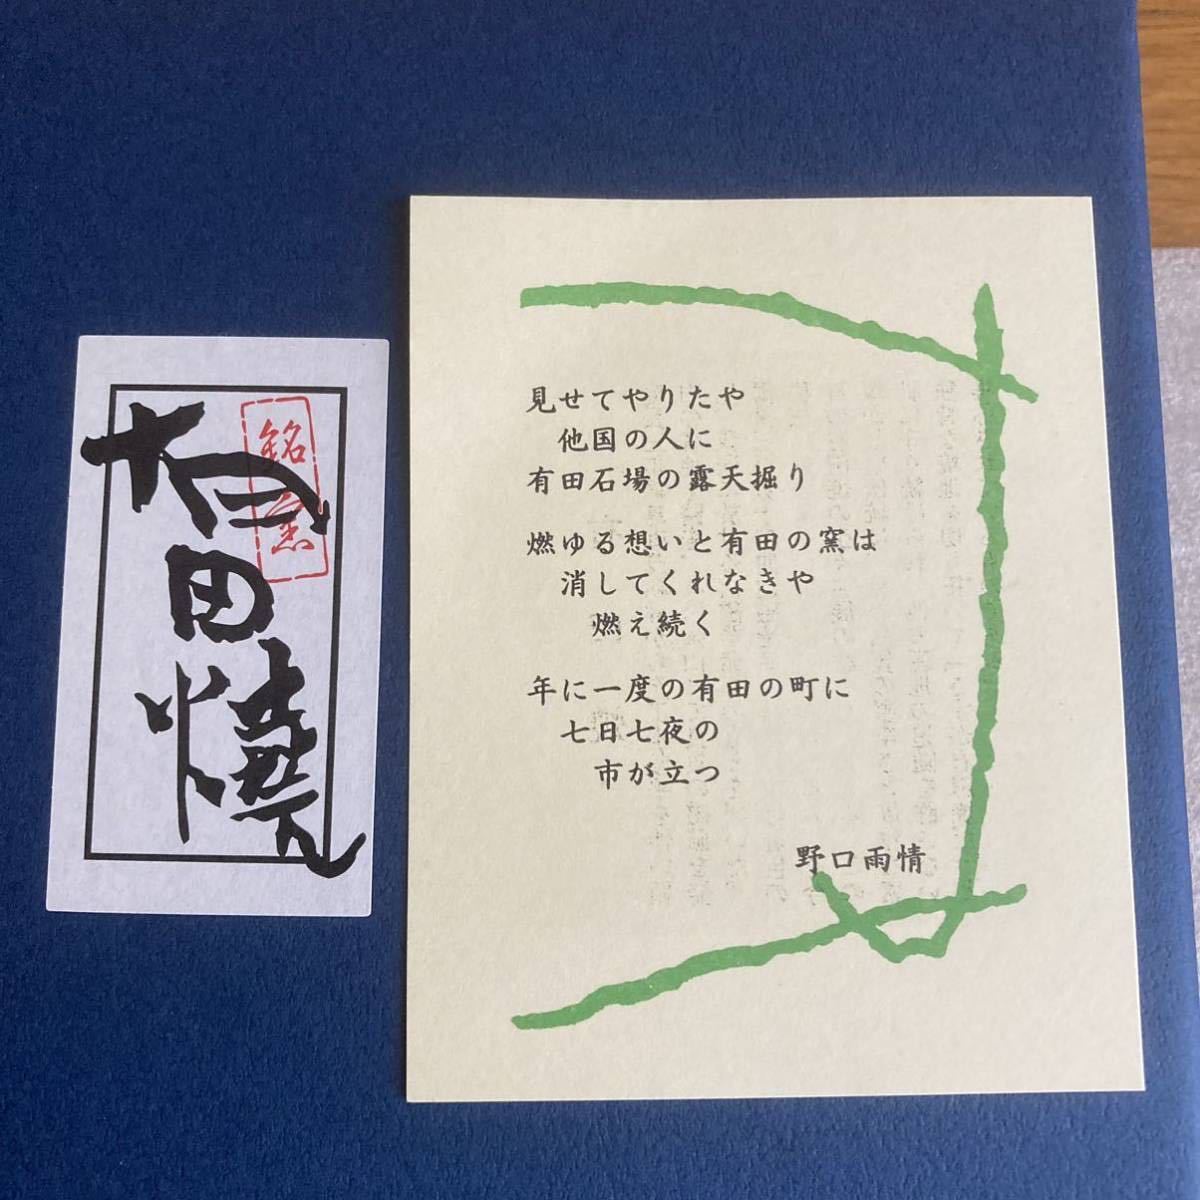 有田焼
銘窯
見せてやりたや
他国の人に
有田石場の露天掘り
燃ゆる想いと有田の窯は
消してくれなきや
燃え続く
年に一度の有田の町に
七日七夜の
市が立つ
野口雨情